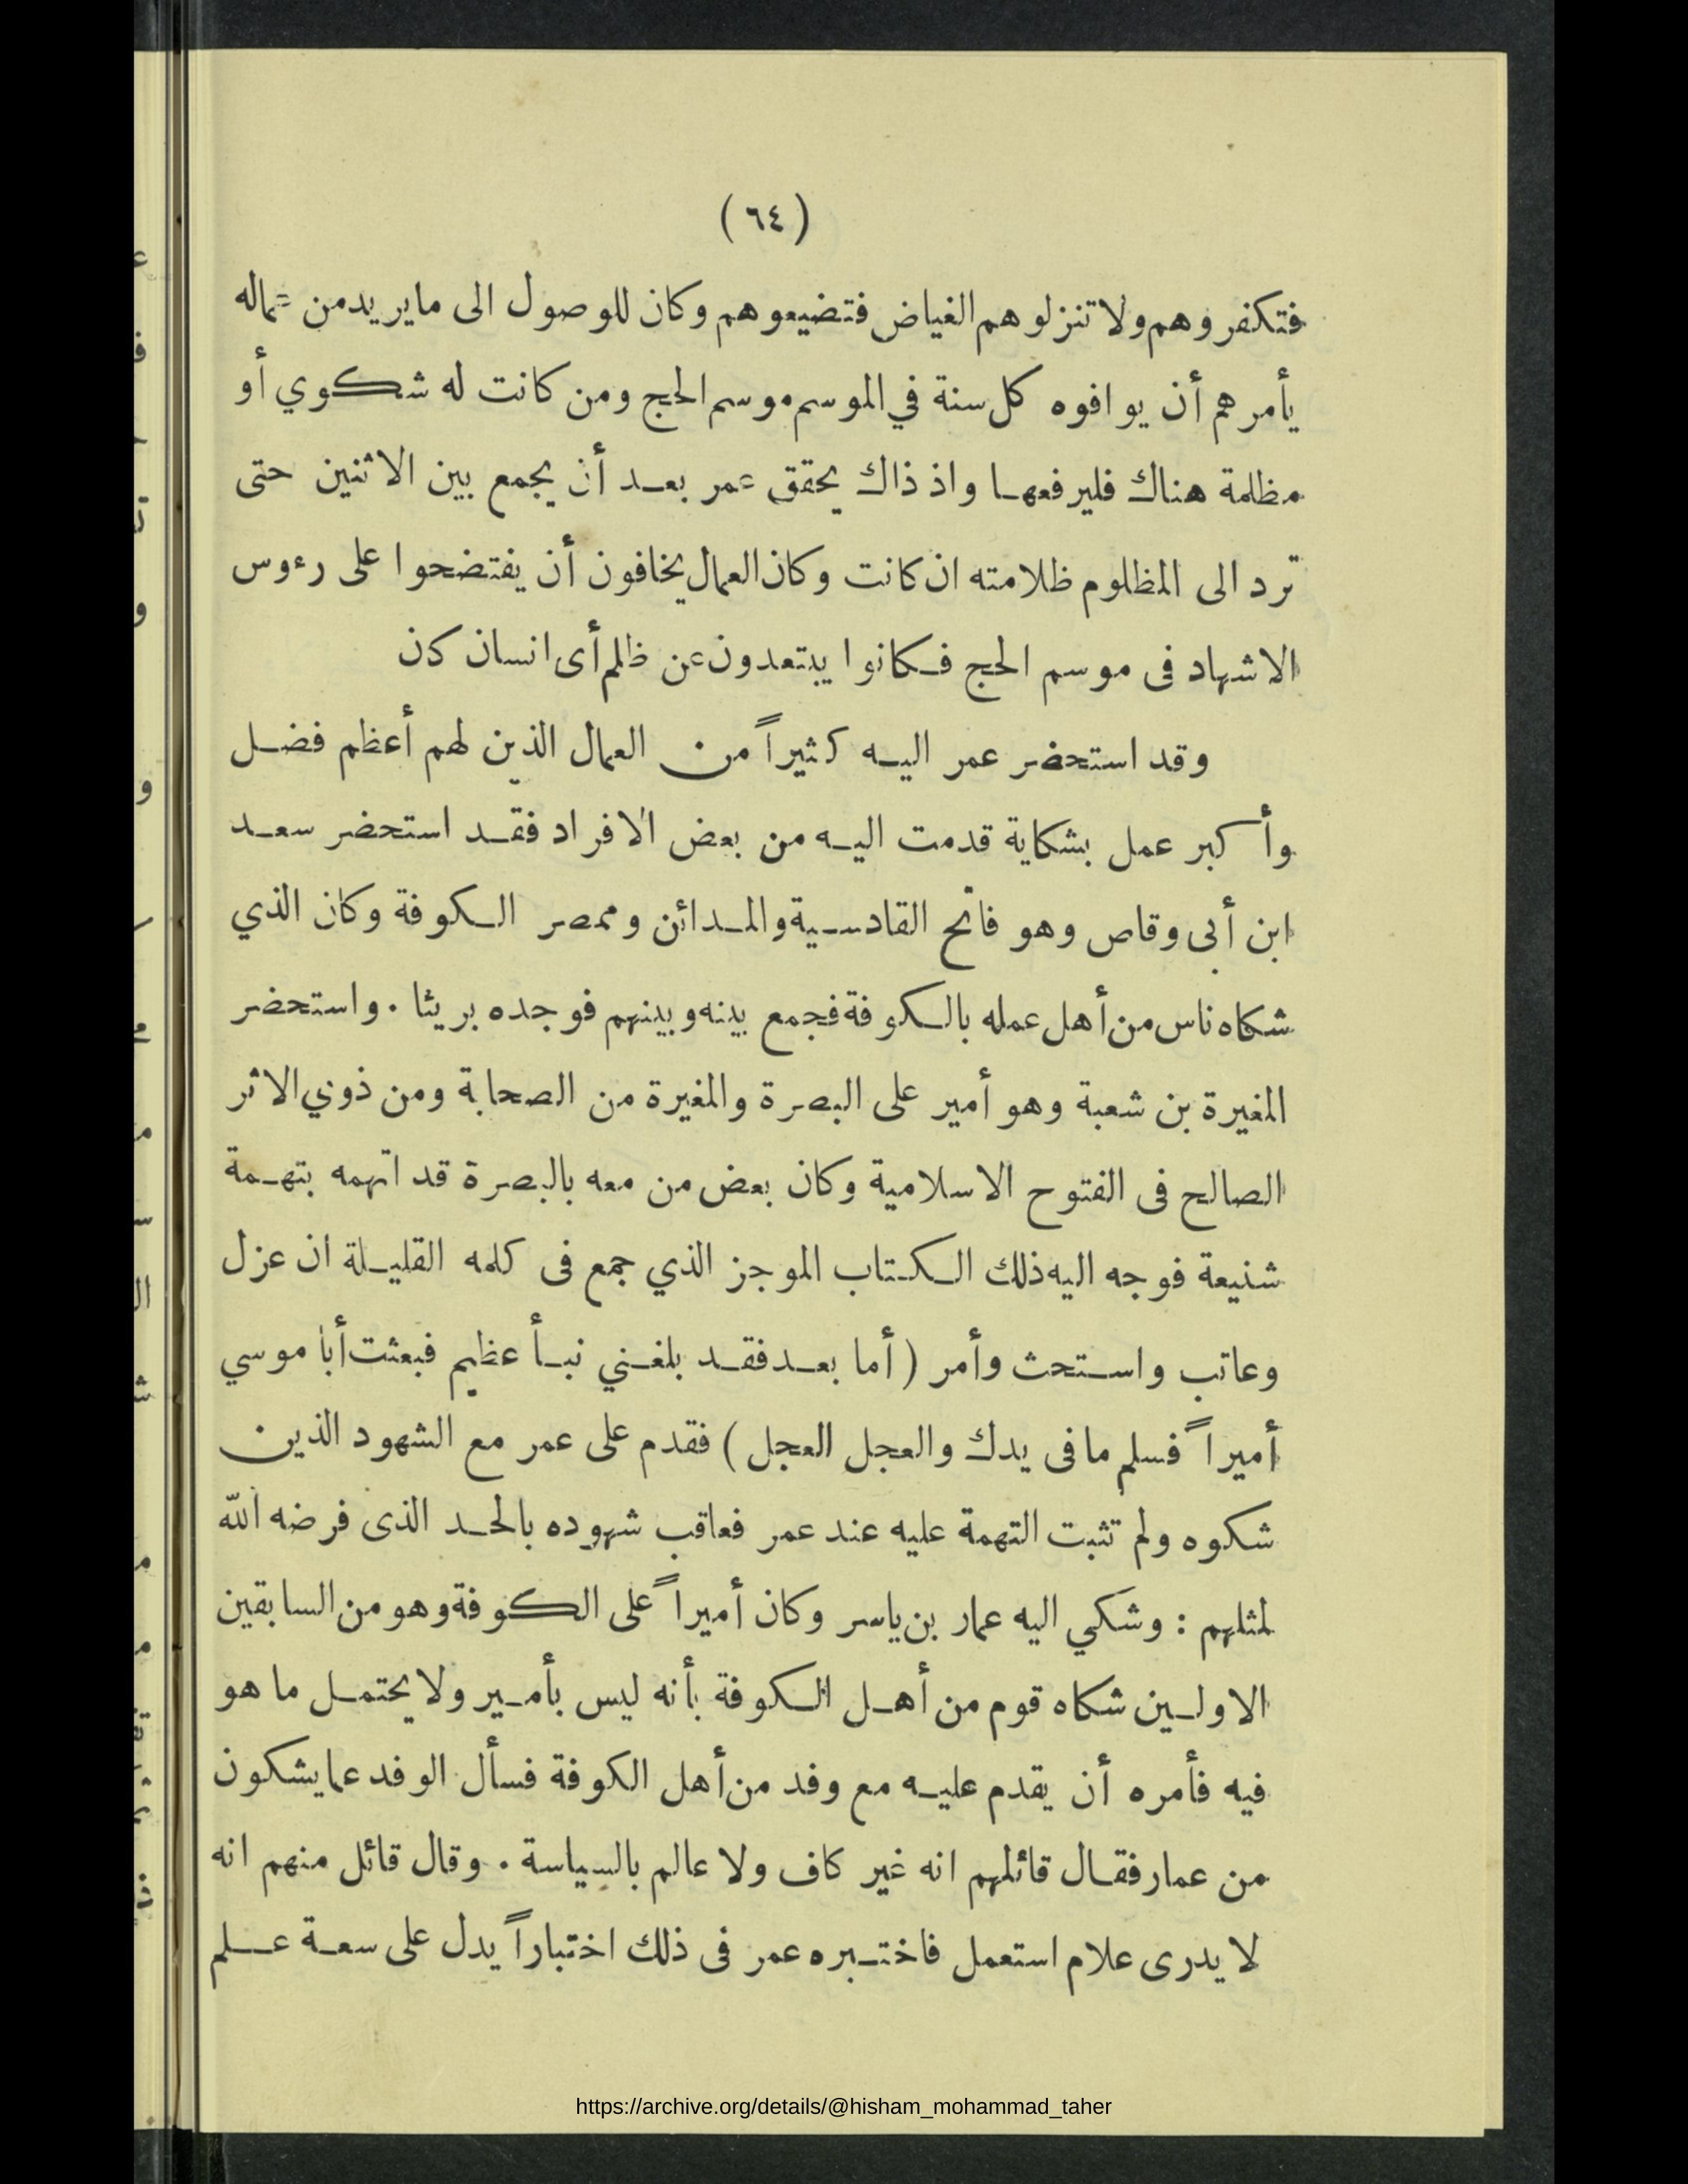 (٦٤)
فتكفروهم ولا تنزلوهم الغياض فتضيعوهم وكان للوصول الى ما يريد من عماله
يأمرهم أن يوافوه كل سنة في الموسم موسم الحج ومن كانت له شكوي أو
مظلمة هناك فليرفعها واذ ذاك يحقق عمر بعد أن يجمع بين الاثنين حتى
ترد الى المظلوم ظلامته ان كانت وكان العمال يخافون أن يفتضحوا على رءوس
الاشهاد فى موسم الحج فكانوا يبتعدون عن ظلم أى انسان كان
وقد استحضر عمر اليه كثيراً من العمال الذين لهم أعظم فضل
وأكبر عمل بشكاية قدمت اليه من بعض الافراد فقد استحضر سعد
ابن أبى وقاص وهو فاتح القادسية والمدائن وممصر الكوفة وكان الذي
شكاه ناس من أهل عمله بالكوفة فجمع بينه وبينهم فوجده بريئا . واستحضر
المغيرة بن شعبة وهو أمير على البصرة والمغيرة من الصحابة ومن ذوي الاثر
الصالح فى الفتوح الاسلامية وكان بعض من معه بالبصرة قد اتهمه بتهمة
شنيعة فوجه اليه ذلك الكتاب الموجز الذي جمع فى كلمه القليلة ان عزل
وعاتب واستحث وأمر ( أما بعد فقد بلغني نبأ عظيم فبعثت أبا موسي
أميراً فسلم ما فى يدك والعجل العجل ) فقدم على عمر مع الشهود الذين
شكوه ولم تثبت التهمة عليه عند عمر فعاقب شهوده بالحد الذى فرضه الله
لمثلهم : وشكي اليه عمار بن ياسر وكان أميراً على الكوفة وهو من السابقين
الاولين شكاه قوم من أهل الكوفة بأنه ليس بأمير ولا يحتمل ما هو
فيه فأمره أن يقدم عليه مع وفد من أهل الكوفة فسأل الوفد عما يشكون
من عمار فقال قائلهم انه غير كاف ولا عالم بالسياسة . وقال قائل منهم انه
لا يدرى علام استعمل فاختبره عمر فى ذلك اختباراً يدل على سعة علم
https://archive.org/details/@hisham_mohammad_taher